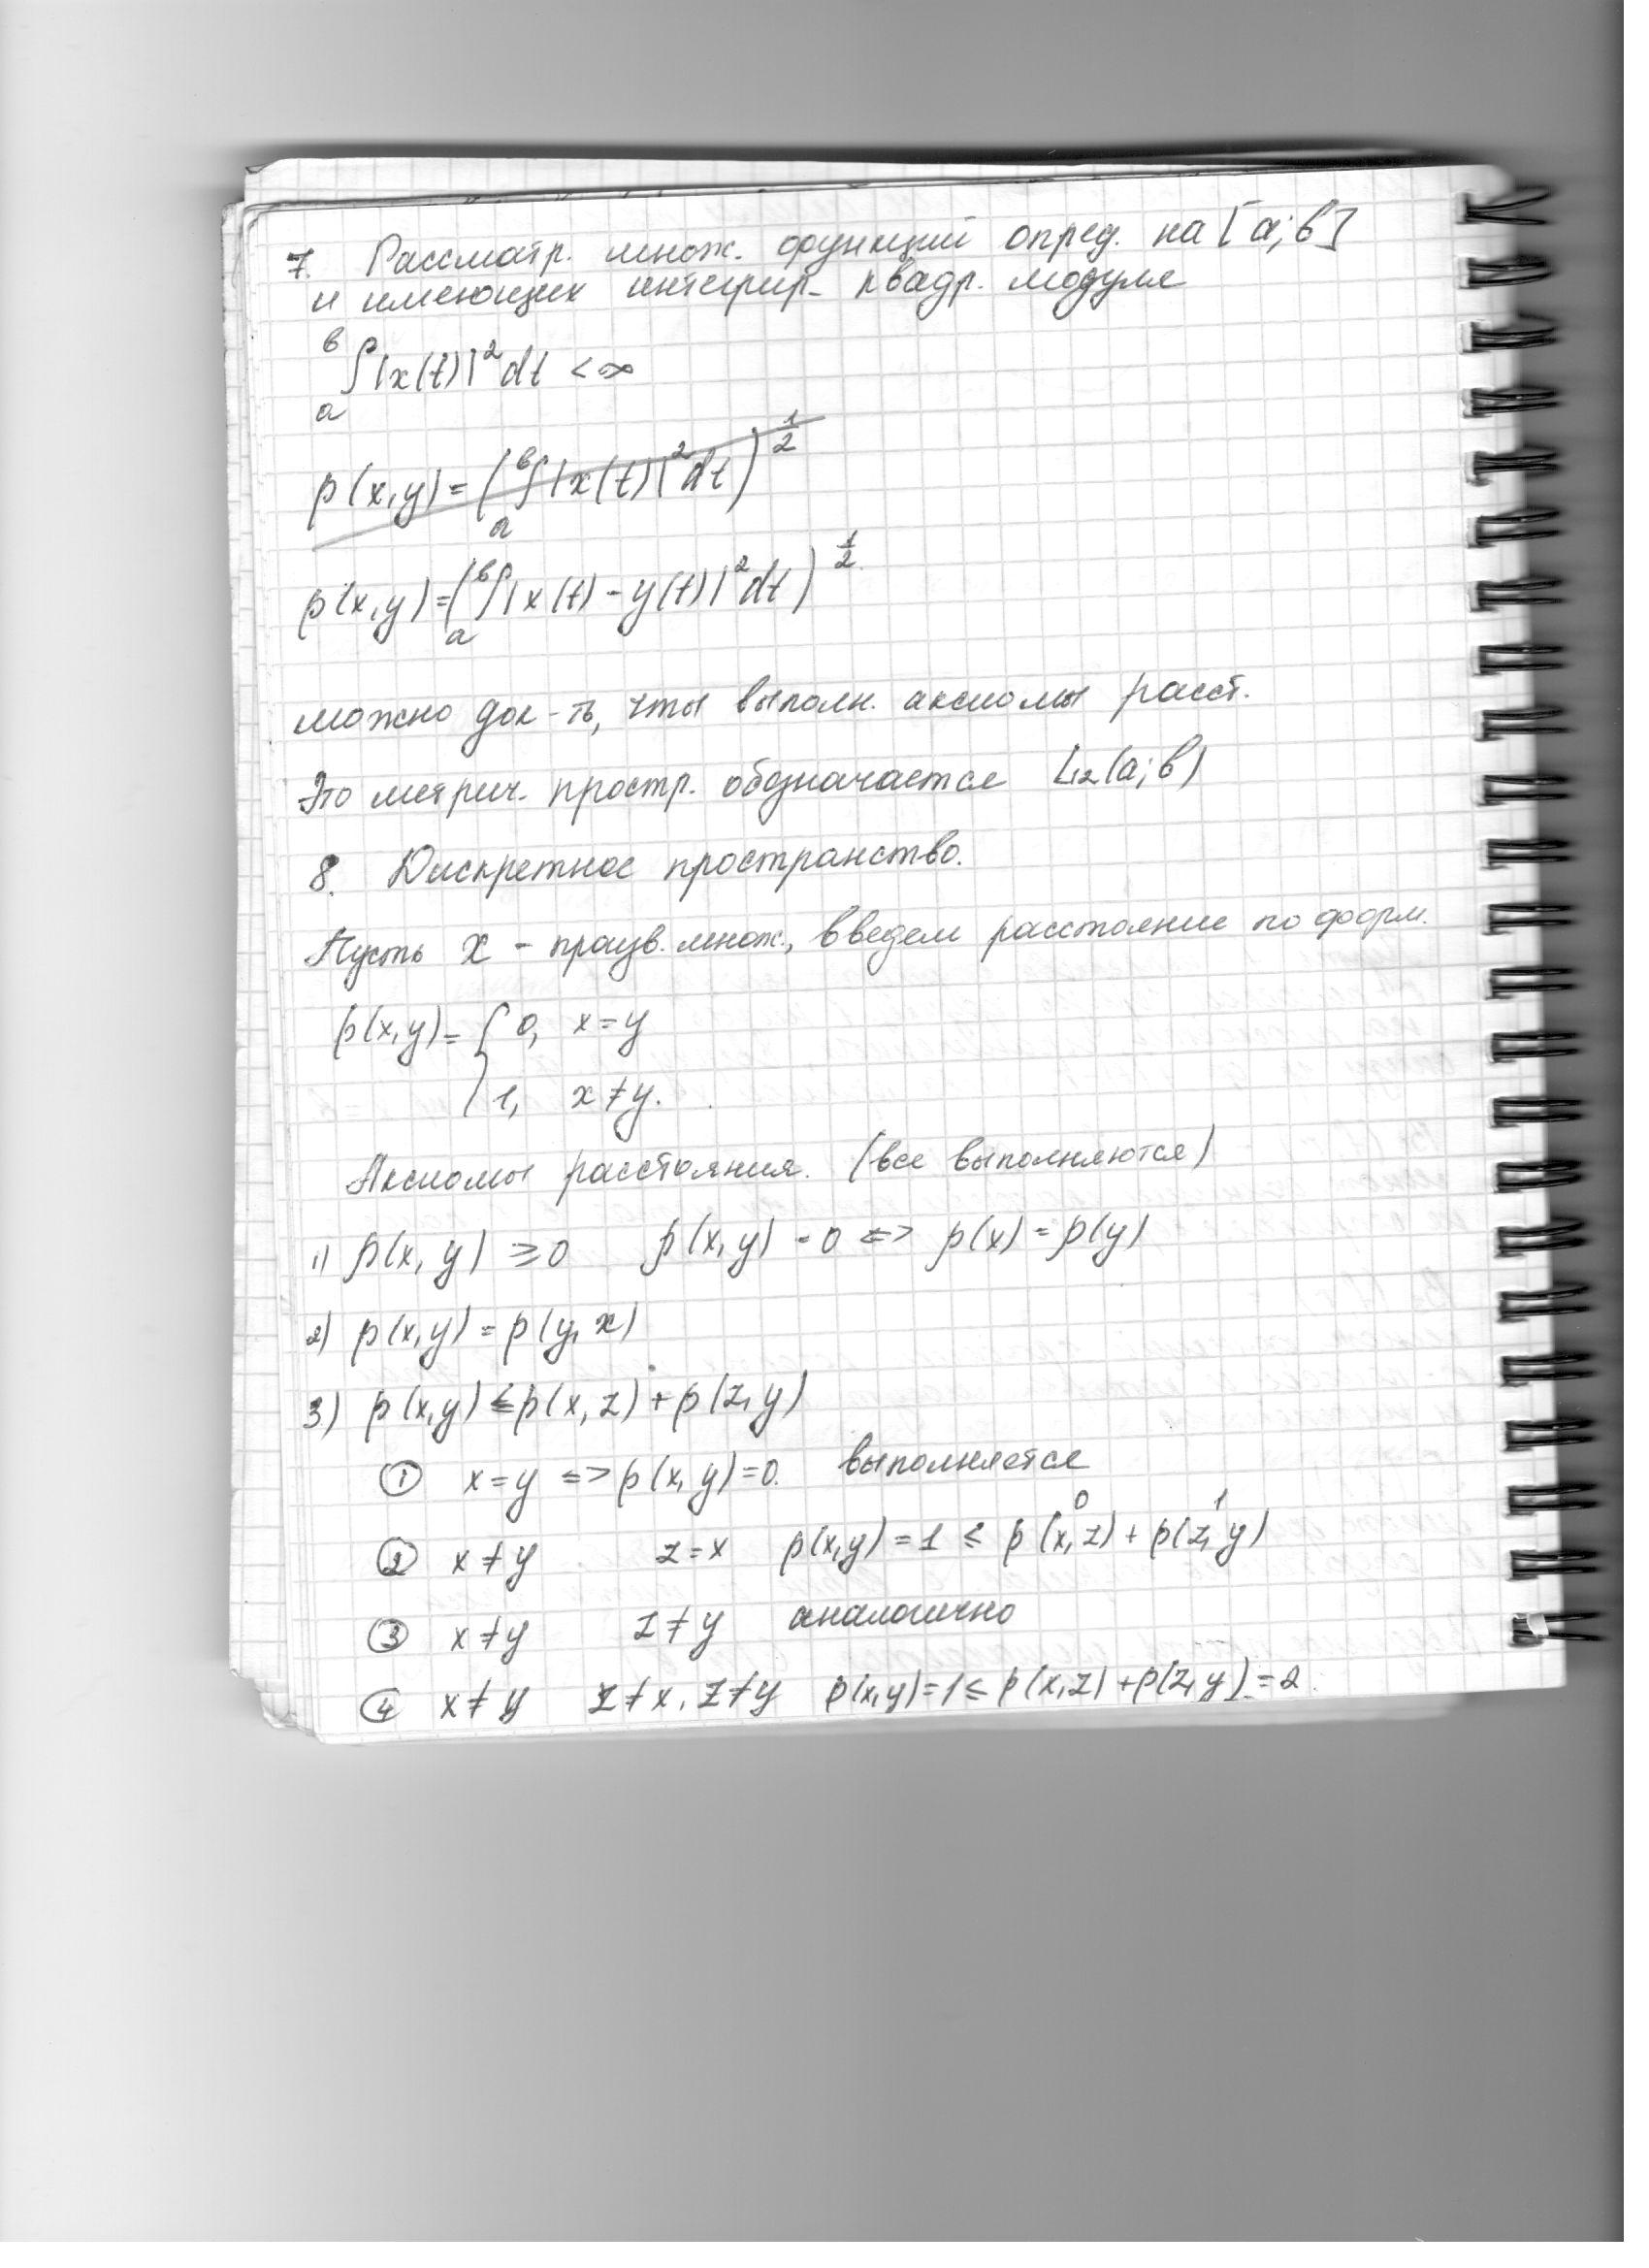 7. Рассматр. множ. функций опред. на [a;b]
и имеющих интегрир. квадр. модуля
∫ₐᵇ|x(t)|²dt < ∞
ρ(x,y) = (∫ₐᵇ|x(t)|²dt)^½
ρ(x,y) = (∫ₐᵇ|x(t) - y(t)|²dt)^½.
можно док-ть, что выполн. аксиомы расст.
Это метрич. простр. обозначается L₂(a;b)
8. Дискретное пространство.
Пусть X - произв. множ., введем расстояние по форм.
ρ(x,y) = { 0, x=y
1, x≠y.
Аксиомы расстояния. (все выполняются)
1) ρ(x,y) ≥ 0 ρ(x,y) = 0 <=> ρ(x) = ρ(y)
2) ρ(x,y) = ρ(y,x)
3) ρ(x,y) ≤ ρ(x,z) + ρ(z,y)
① x=y <=> ρ(x,y)=0. выполняется
0 1
② x≠y z=x ρ(x,y) = 1 ≤ ρ(x,z) + ρ(z,y)
③ x≠y z≠y аналогично
④ x≠y z≠x, z≠y ρ(x,y)=1 ≤ ρ(x,z)+ρ(z,y)=2.